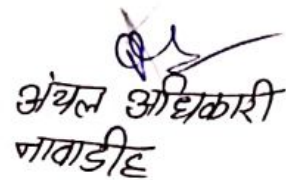 अंचल अधिकारी
नावाडीह